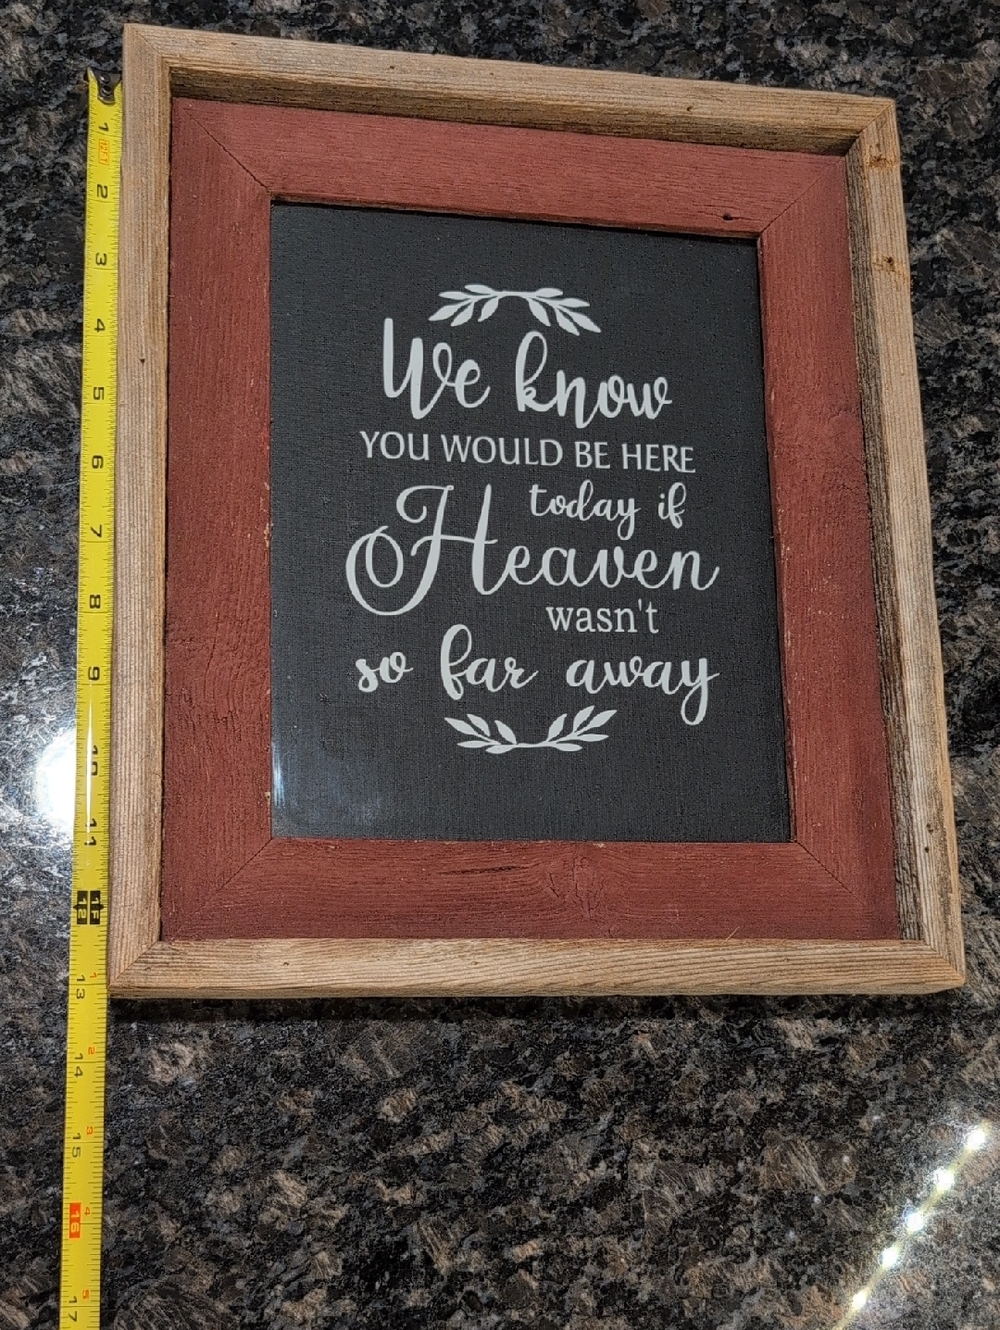 We know
YOU WOULD BE HERE
today if
Heaven
wasn't
so far away
1
2
3
4
5
6
7
8
9
10
11
12 1F
13 1
14 2
15 3
16 4
17 5